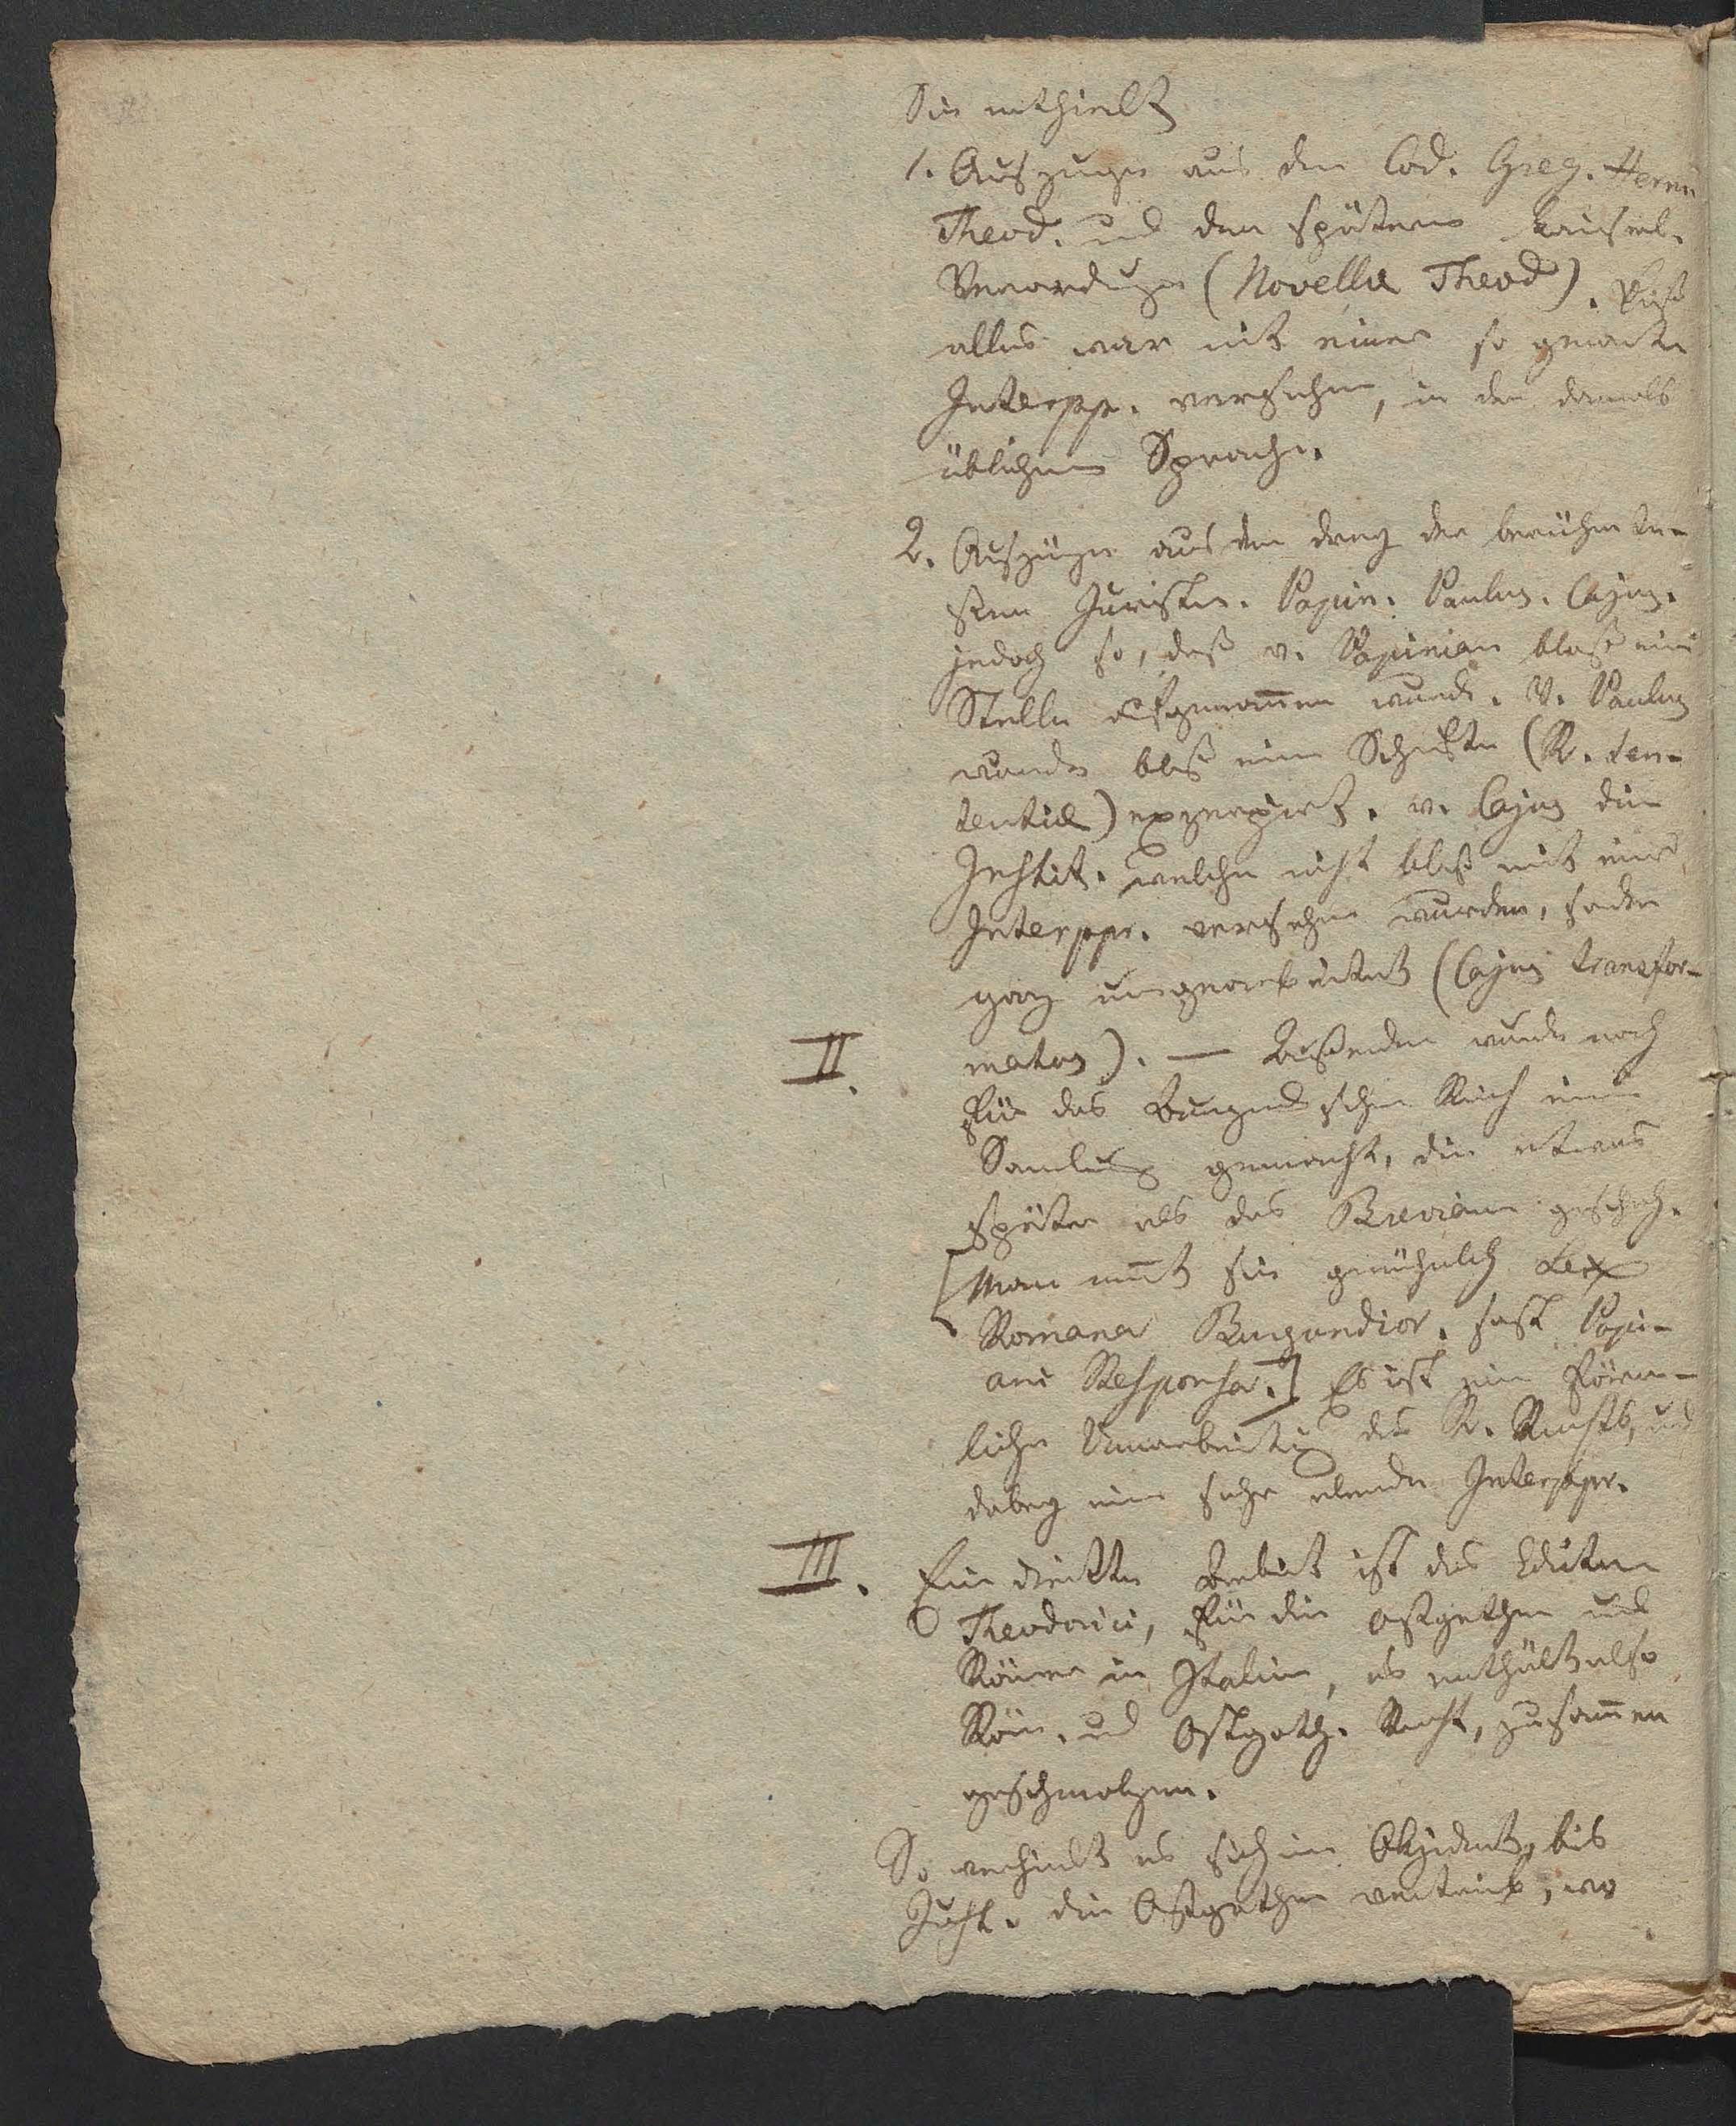 Sie enthielt
1. Auszüge aus den Cod. Greg. Herm
Theod. und den spätern kaiserl.
Verordnugen (Novellae Theod).
alles war mit einer so genante
Interpr. versehen, in der damals
üblichen Sprache.
2. Auszüge aus den der berühmte-
sten Juristen. Papin. Paulus. Cajus.
jedoch so, daß v. Papinian bloß eine
Stelle aufgenom̄en wurde. V. Paulus
wurde bloß eine Schrifte (R. Sen-
tentiae) exzerpirt. v. Cajus die
Instit. welche nicht bloß mit einer
Interpr. versehen wurden, sonder
ganz umgearbeitet (Cajus transfor-
II. matus). — Außerdem wurde noch
für das Burgundschen Reich eine
Samlung gemacht, die etwas
später als das Breviam geschah.
[Man nen̄t sie gewöhnlich Lex
Romana Burgundior. sonst Papi-
ani Responsa.] Es ist eine förm-
liche Umarbeitug des R. Rechts, und
dabey eine sehr elende Interpr.
III. Ein dritte Arbeit ist das Edictum
Theodorici, für die Ostgothen und
Römer in Italien, es enthält also
Röm. und Ostgoth. Recht, zusam̄en
geschmolzen.
So verhielt es sich im Okzident, bis
Just. die Ostgothen vertrieb, wo